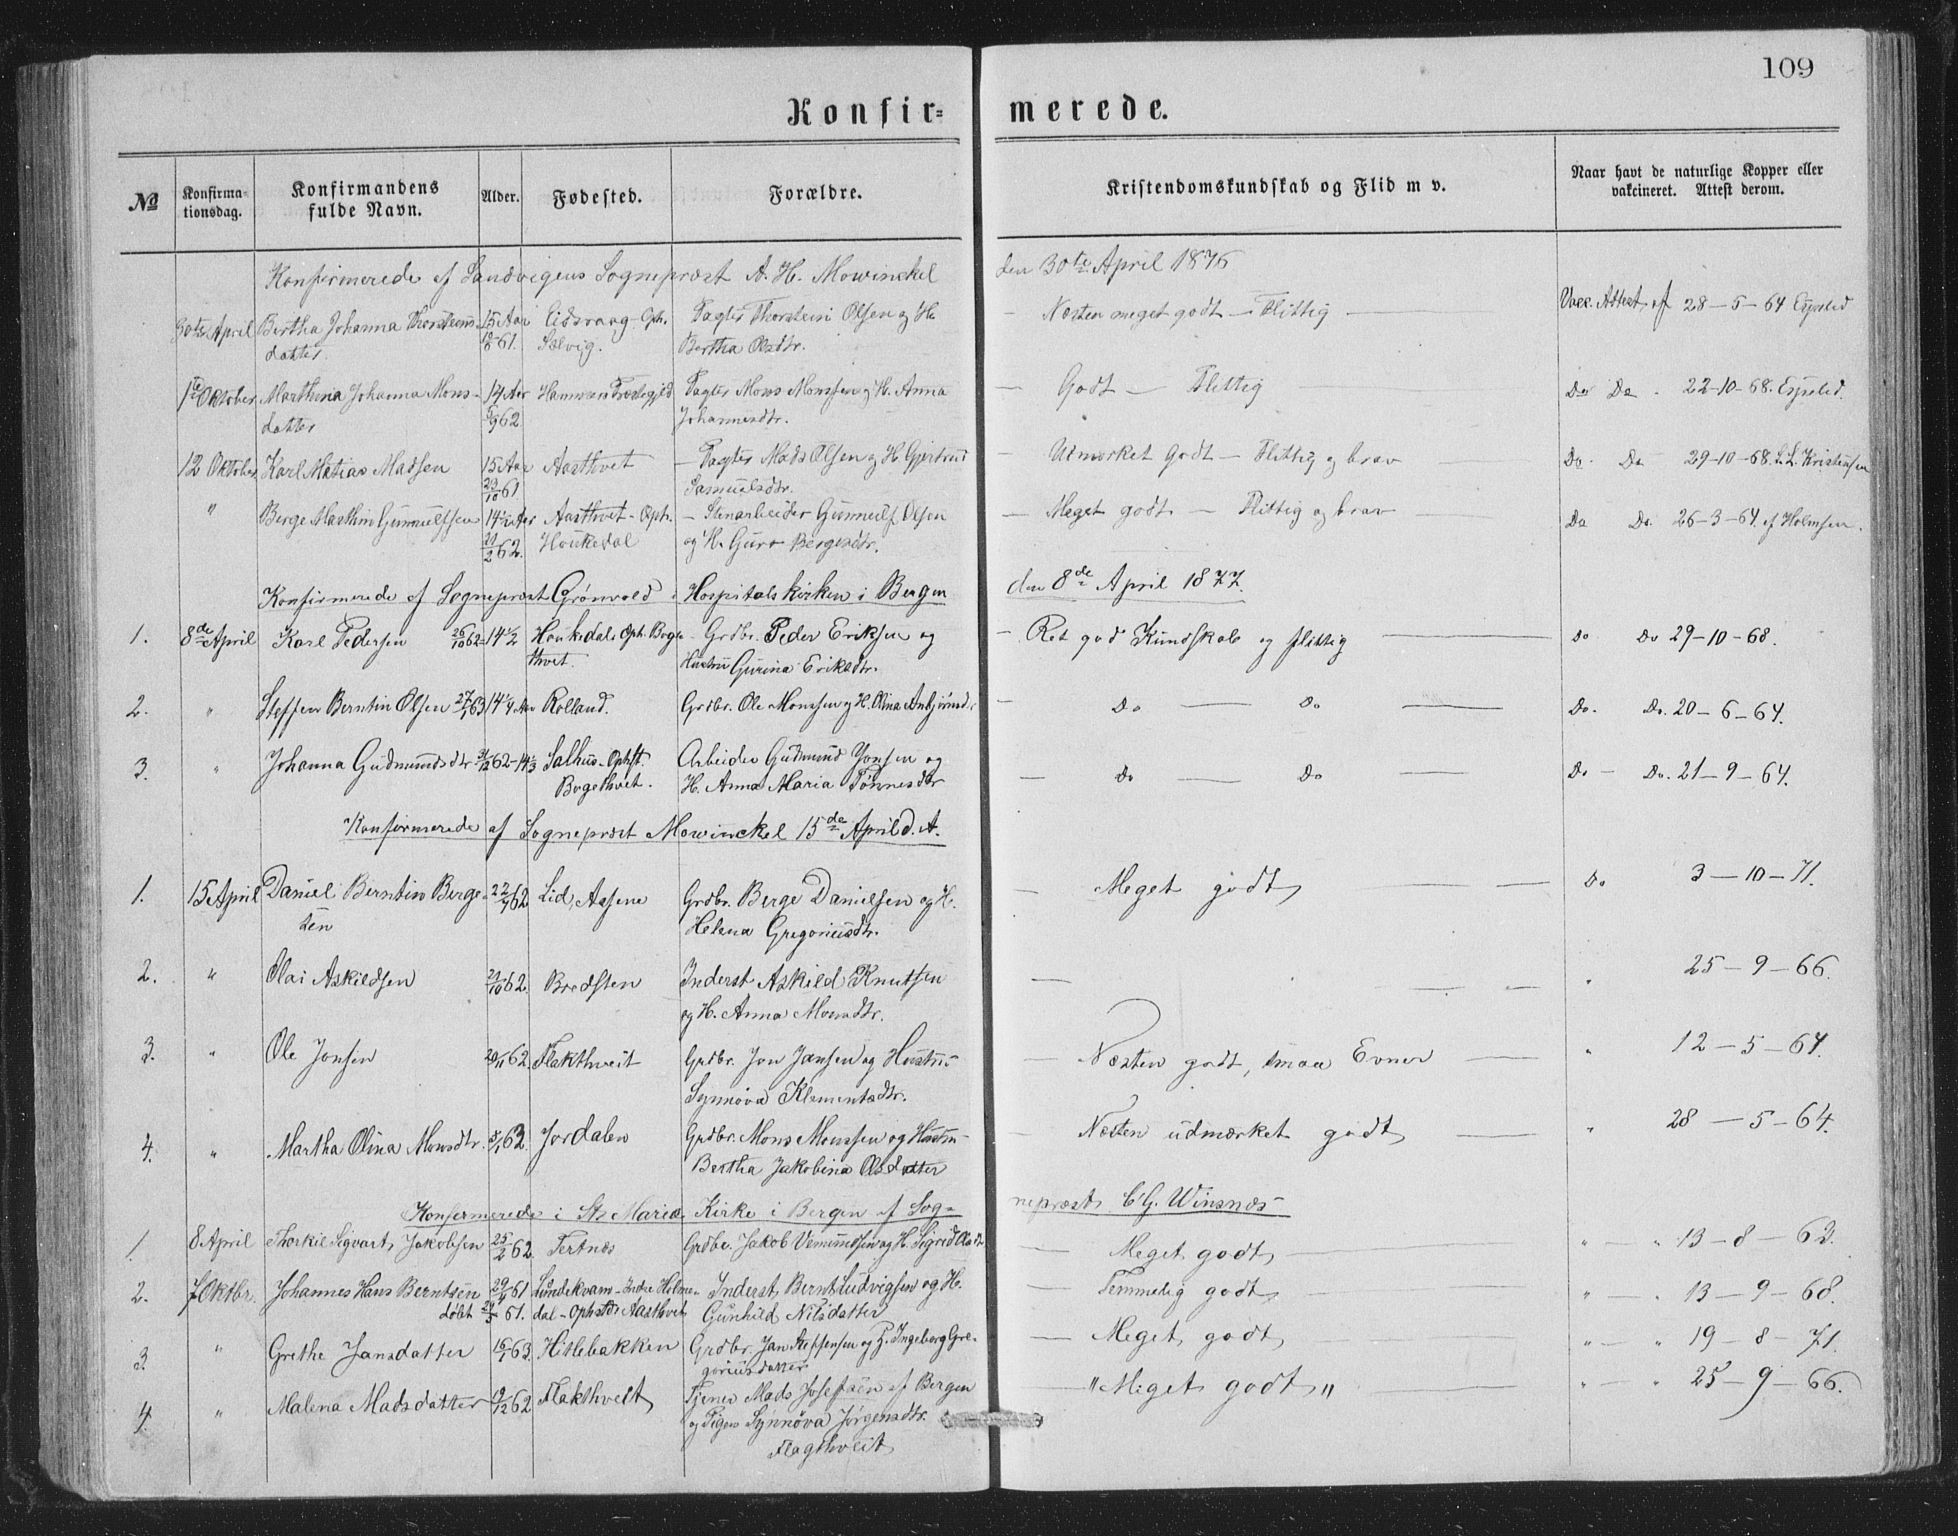 109
Konfir= merede.
№ Konfirma-tionsdag. Konfirmandens fulde Navn. Alder. Fødested. Forældre. Kristendomskundskab og Flid m v. Naar havt de naturlige Kopper eller vakcineret. Attest derom.
Konfirmerede af Sandvigens Sognepræst A. H. Mowinckel den 30te April 1876
30te April Bertha Johanna Thorsteins- 15 Aar Eidsvaag - Oph. Pagter Thorstein Olsen og H. — Næsten meget godt — Flittig — Vacc. Attest af 28-5-64 Espelid
datter 61. Sælvig. Bertha Olsdtr.
1te Oktober Marthina Johanna Mons- 14 Aar Hammers Præstegjeld Pagter Mons Monssen og H. Anna — Godt — Flittig Do Do 22-10-68. Espelid.
datter 5/9 62 Johannesdtr.
12 Oktober Karl Matias Madsen 15 Aar Aasthvet — Pagter Mads Olsen og H Gjertrud — Udmærket Godt — Flittig og brav — Do Do 29-10-68. L. Kristensen
23/10 61 Samuelsdtr.
" Berge Marthin Gunnulfsen 14½ Aar Aasthvet - Oph. — Stenarbeider Gunnulf Olsen — Meget godt — Flittig og brav — Do Do. 26-3-64 af Holmsen.
21/2 62. Houkedal og H. Guro Bergesdtr.
Konfirmerede af Sognepræst Grønvold i Hospitalskirken i Bergen den 8de April 1877.
1. 8de April Karl Pedersen 26/10 62 - 14½ Houkedal. Oph. Boge- Grdbr. Peder Eriksen og — Ret god Kundskab og flittig — Do Do 29-10-68.
thvet. Hustru Gurina Eriksdtr.
2. " Steffen Berntin Olsen 27/1 63 14¼ Aar Rolland. Grdbr. Ole Monssen og H. Olina Anbjørnsd. — Do — Do — Do. Do. 20-6-64.
3. " Johanna Gudmundsdtr 31/12 62 - 14⅓ Salhus - Ophst. Arbeider Gudmund Jonsen og — Do — Do — Do — Do. 21-9-64.
Bogethvet. H. Anna Maria Tønnesdtr
Konfirmerede af Sognepræst Mowinckel 15de April d. A.
1. 15 April Daniel Berntin Berge- 22/7 62 Lid, Aasene Grdbr. Berge Danielsen og H. — Meget godt — Do 3-10-71.
sen Helena Gregoriusdtr.
2. " Olai Askildsen 21/10 62. Bredsten Inderst Askild Knutsen — " 25-9-66.
og H. Anna Monsdtr.
3. " Ole Jonsen 20/11 62. Flakthveit Grdbr. Jon Jansen og Hustru — Næsten godt, smaa Evner — " 12-5-64.
Synnøva Klementsdtr.
4. " Martha Olina Monsdtr. 5/1 63. Jordalen Grdbr. Mons Monssen og Hustru — Næsten udmærket godt — " 28-5-64.
Bertha Jakobina Olsdatter
Konfirmerede i St. Mariæ Kirke i Bergen af Sog- nepræst C G. Winsnæs
1. 8 April Thorkil Sigvart Jakobsen 25/2 62. Tertnæs Grdbr. Jakob Vemundsen og H. Sigrid — Meget godt — " " 13-8-63.
2. 7 Oktbr. Johannes Hans Berntsen 29/4 61 Lundekvam - Indre Holme- Inderst Bernt Ludvigsen og H. — Temmelig godt — " — " 13-9-68.
døbt 61. dal - Ophsted Aasthvet Gunhild Nilsdatter
3. " Grethe Jansdatter 16/1 63. Hitlebakken Grdbr. Jan Steffensen og H. Ingeborg Gre- — Meget godt " — " 19-8-71.
goriusdatter
4. " Malena Madsdatter 19/12 62 Flakthveit Tjener Mads Josefsen af Bergen — " Meget godt " — " — " 25-9-66.
og Pigen Synnøva Jørgensdtr.
Flagthveit